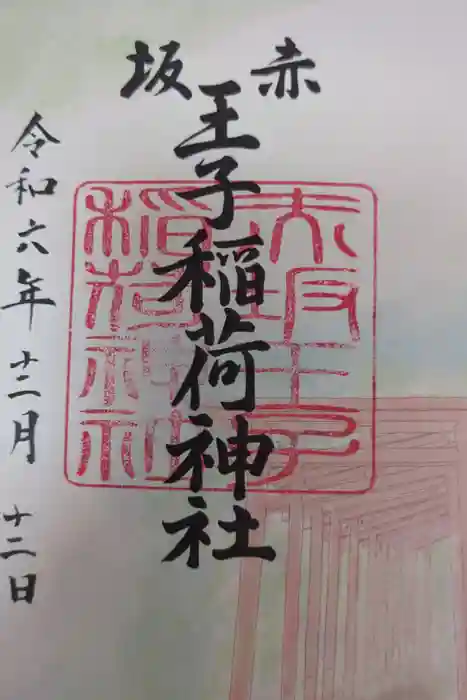 赤坂
王子稲荷神社
令和六年 十二月 十二日
赤坂王子
稲荷神社